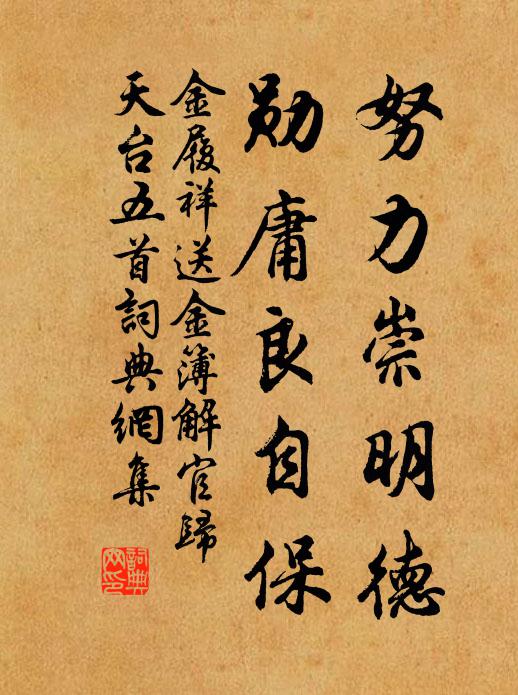 努力崇明德
勋庸良自保
金履祥送金簿解官歸
天台五首詞典網集
詞典网印